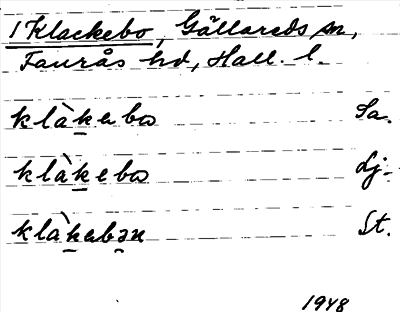 1 Klackebo, Gällareds sn,
Faurås hd, Hall. l.
klàkabo Sa.
klàkebo Lj.
klàkabən St.
1948